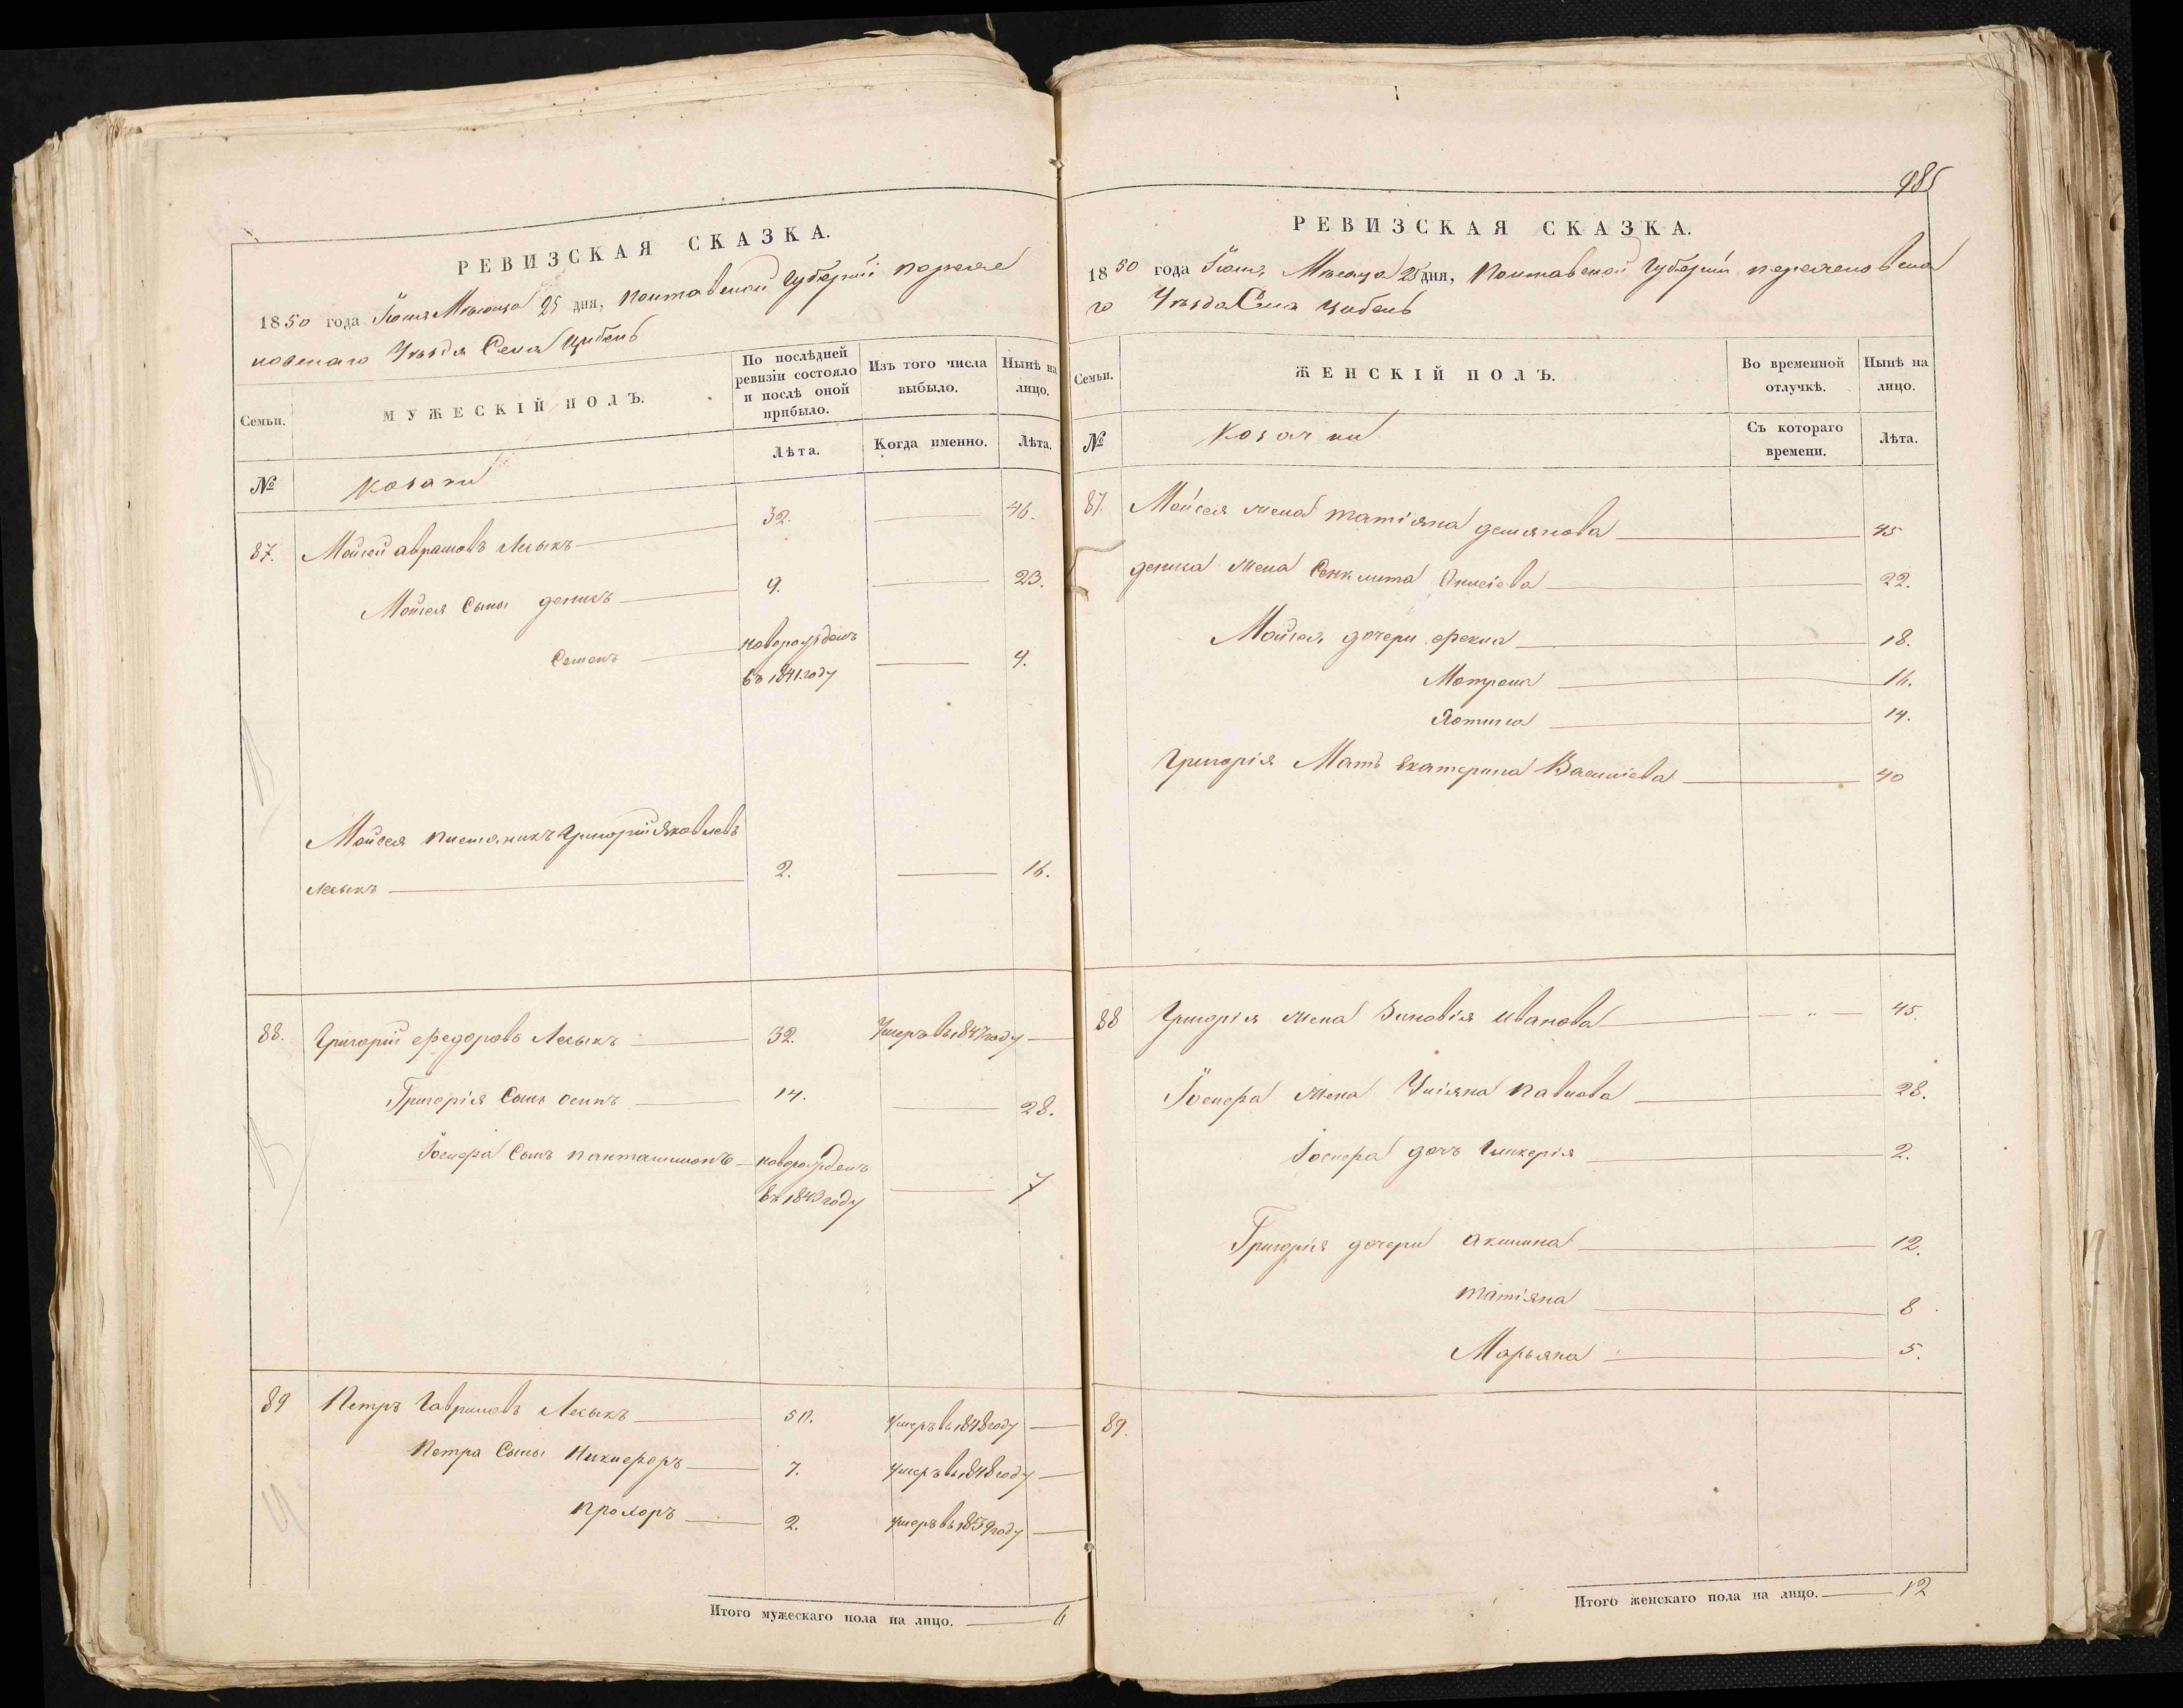 РЕВИЗСКАЯ СКАЗКА.
1850 года Іюня Мѣсяца 25 дня, Полтавской Губерніи Переяс
ловскаго Уѣзда Села Цибель
Семьи. МУЖЕСКІЙ ПОЛЪ. По послѣдней ревизіи состояло и послѣ оной прибыло. Изъ того числа выбыло. Нынѣ на лицо.
№ Козаки Лѣта. Когда именно. Лѣта.
87. Мойсей аврамовъ Лесыкъ 32. 46.
Мойсея Сыны денисъ 9. 23.
Семенъ новорожденъ
въ 1841 году 9.
Мойсея племяникъ Григорій Яковлевъ
Лесыкъ 2. 16.
88. Григорій Федоровъ Лесыкъ 32. Умеръ въ 1847 году
Григорія Сынъ осипъ 14. 28.
Іосифа Сынъ Пантелимонъ новорожденъ
въ 1843 году 7
89 Петръ Гавриловъ Лесыкъ 50. умеръ въ 1848 году
Петра Сыны Никифоръ 7. умеръ въ 1848 году
Прохоръ 2. умеръ въ 1839 году
Итого мужескаго пола на лицо. 6
985
РЕВИЗСКАЯ СКАЗКА.
1850 года Іюня Мѣсяца 25 дня, Полтавской Губерніи переясловска
го Уѣзда Села Цибель
Семьи. ЖЕНСКІЙ ПОЛЪ. Во временной отлучкѣ. Нынѣ на лицо.
№ Козачки Съ котораго времени. Лѣта.
87. Мойсея жена татіяна демянова 45
дениса жена 22.
Мойсея дочери Фекла 18.
Мотрона 16.
14.
Григорія Мать Екатерина Василіева 40
88 Григорія жена Зиновія Иванова 45.
Іосифа жена Уліяна Павлова 28.
Іосифа дочь Гликерія 2.
Григорія дочери акилина 12.
татіяна 8.
Марьяна 5.
89.
Итого женскаго пола на лицо. 12